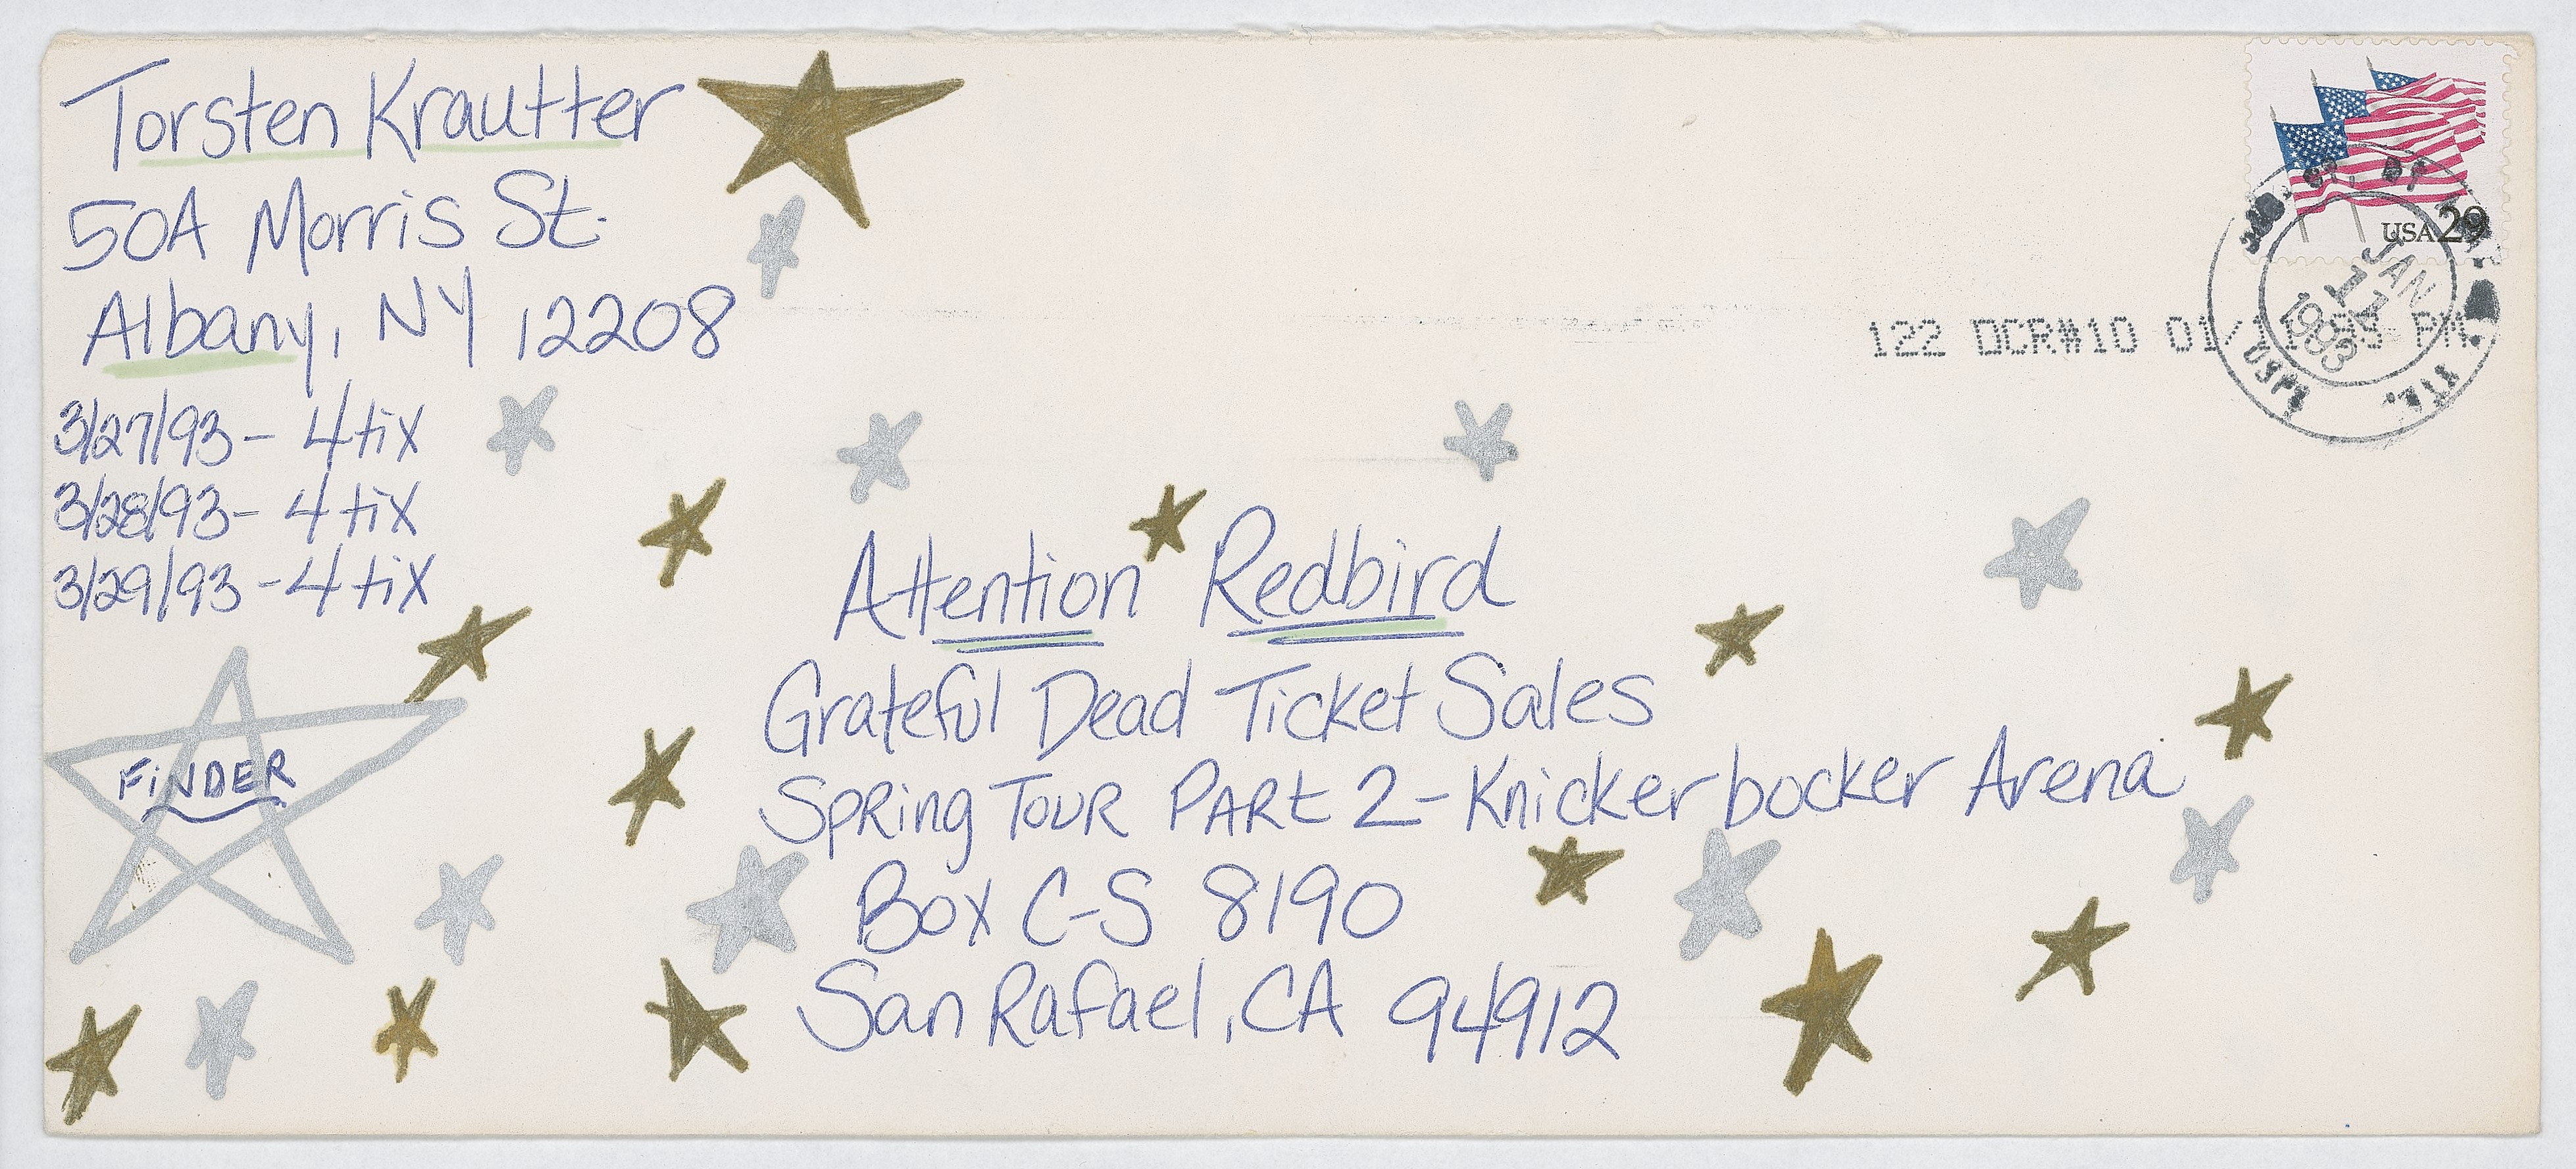 Torsten Krautter
50A Morris St.
Albany, NY 12208
3/27/93 - 4 tix
3/28/93 - 4 tix
3/29/93 - 4 tix
FiNDER
USA 29
JAN
11
1993
122 DCR#10 01/11/93 PM
Attention Redbird
Grateful Dead Ticket Sales
Spring Tour Part 2 - Knickerbocker Arena
Box C-S 8190
San Rafael, CA 94912